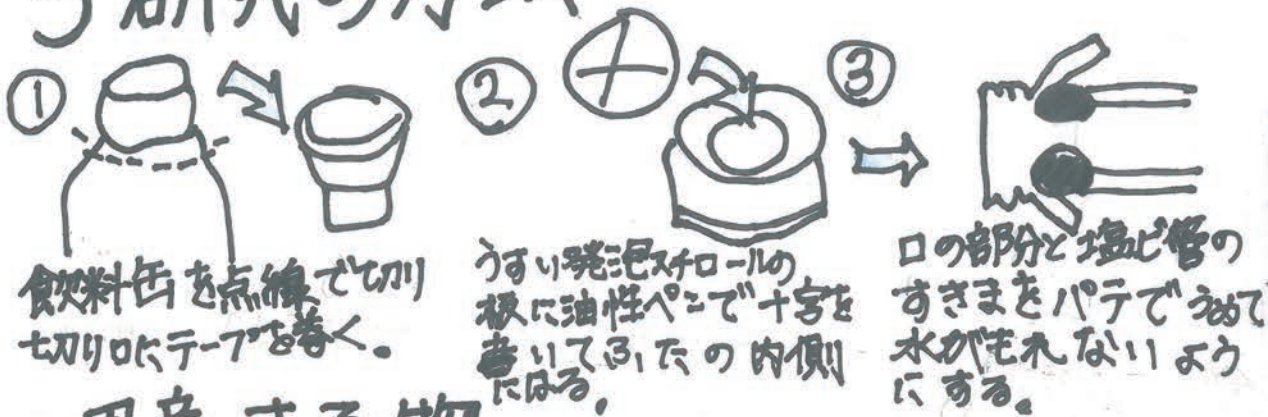 ①
飲料缶を点線で切り
切り口にテープを巻く。
②
うすい発泡スチロールの
板に油性ペンで十字を
書いてふたの内側
にはる。
③
口の部分と塩ビ管の
すきまをパテでうめて
水がもれないよう
にする。
用意する物